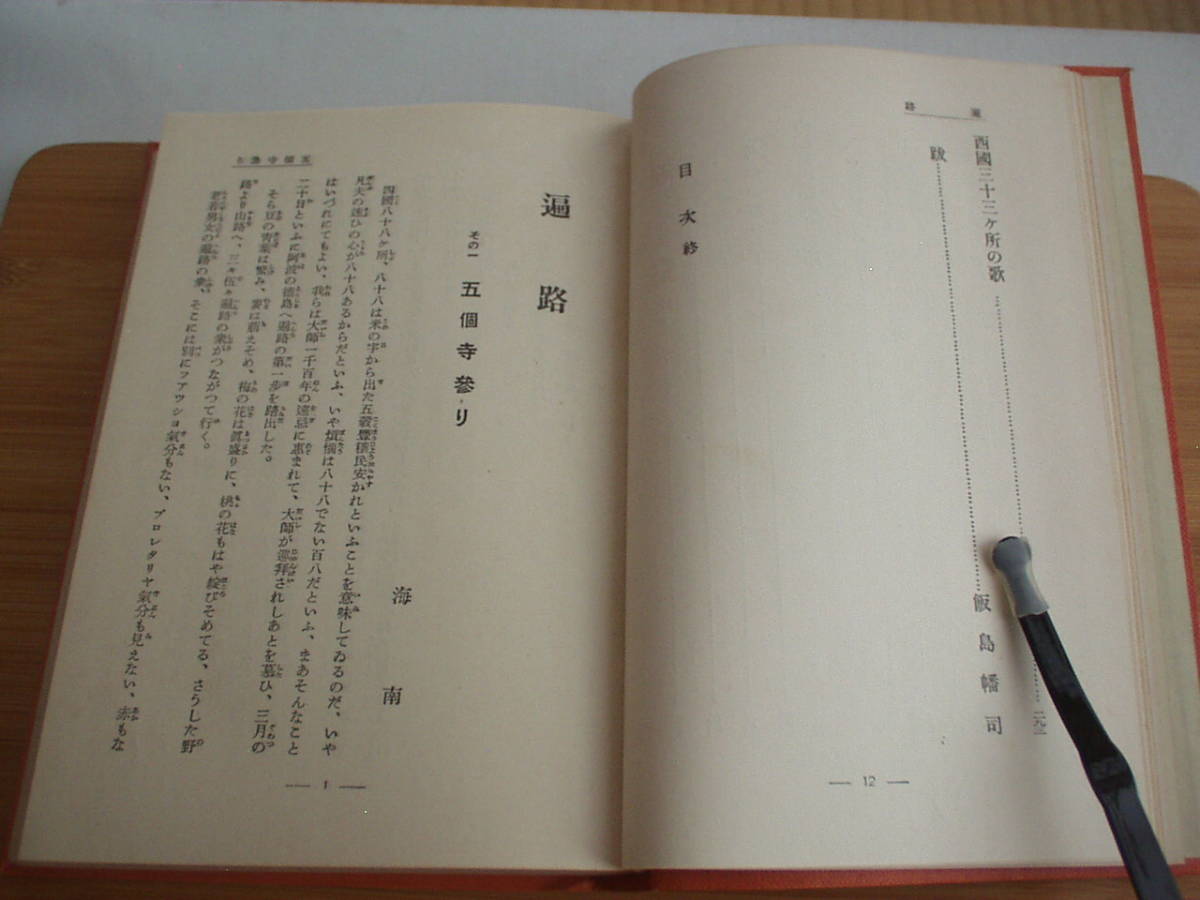 遍路
西國三十三ヶ所の歌……二九三
跋……飯島幡司
目次終
— 12 —
五個寺參り
遍路
海南
その一 五個寺參り
四國八十八ケ所、八十八は米の字から出た五穀豐穰民安かれといふことを意味してゐるのだ、いや
凡夫の迷ひの心が八十八あるからだといふ、いや煩惱は八十八でない百八だといふ、まあそんなこと
はいづれにてもよい、我らは大師一千百年の遠忌に惠まれて、大師が巡拜されしあとを慕ひ、三月の
二十日といふに阿波の德島へ遍路の第一步を踏出した。
そら豆の靑葉は繁み、麥は萠えそめ、梅の花は眞盛りに、桃の花もはや綻びそめてる、さうした野
路より山路へ、三々伍々遍路の衆がつながつて行く。
老若男女の遍路の衆、そこには別にフアツシヨ氣分もない、プロレタリヤ氣分も見えない、赤もな
— 1 —